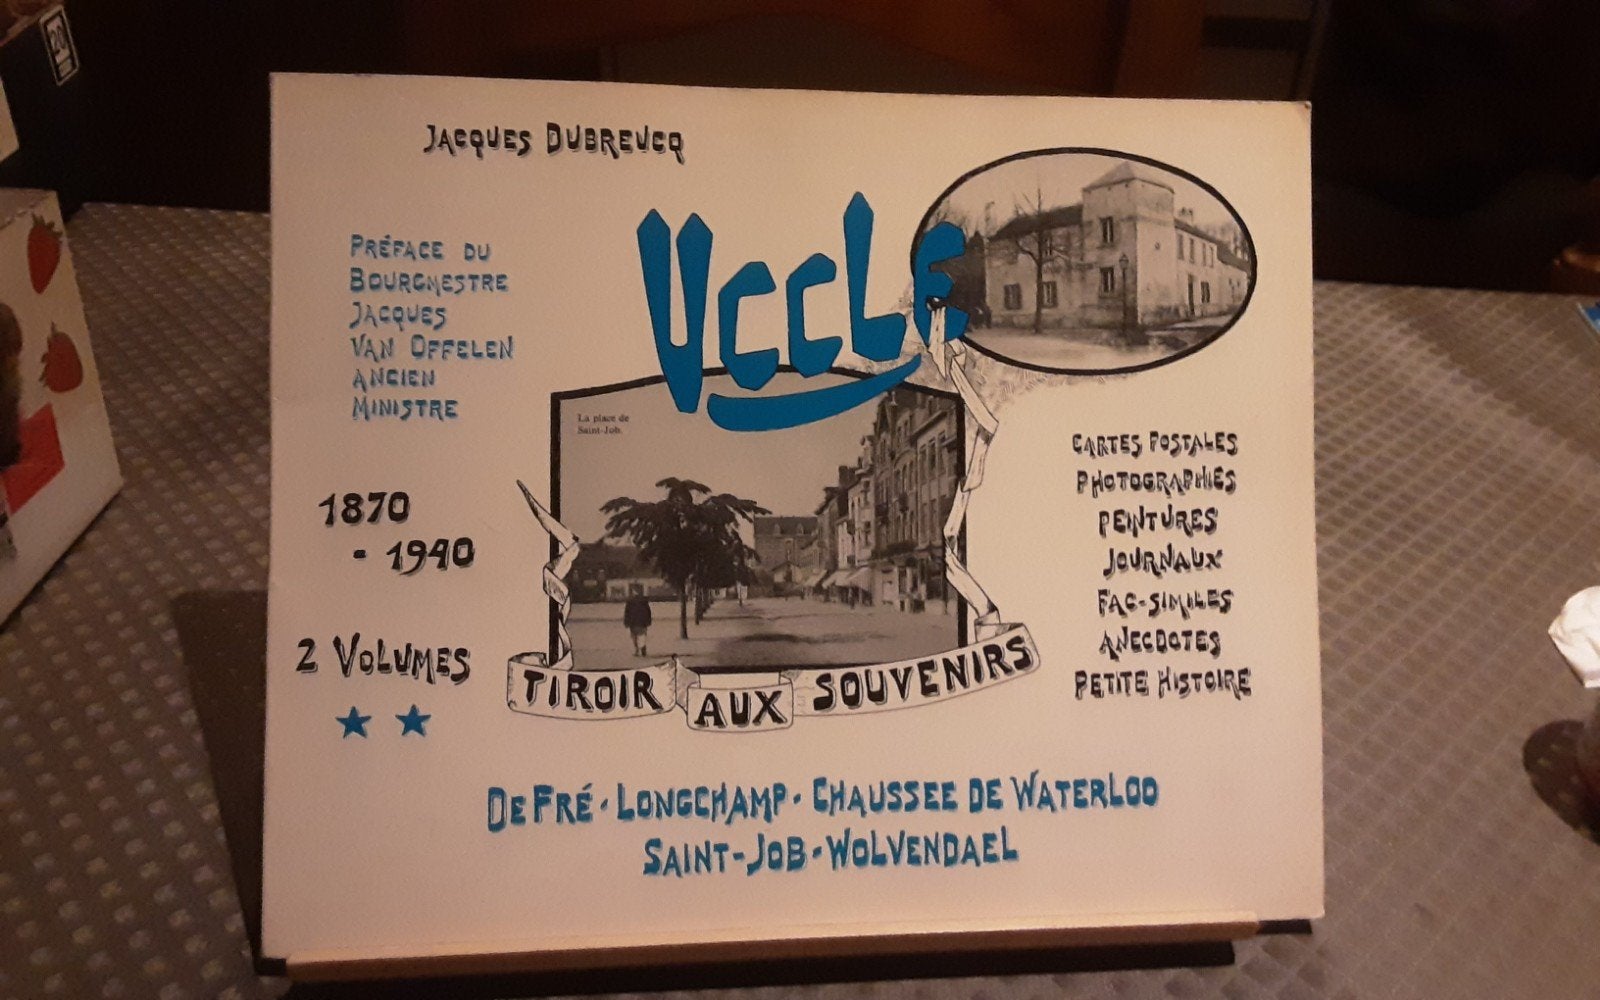 20
JACQUES DUBREUCQ
PRÉFACE DU
BOURGMESTRE
JACQUES
VAN OFFELEN
ANCIEN
MINISTRE
UCCLE
La place de
Saint-Job.
1870
- 1940
2 VOLUMES
CARTES POSTALES
PHOTOGRAPHIES
PEINTURES
JOURNAUX
FAC-SIMILES
ANECDOTES
PETITE HISTOIRE
TIROIR AUX SOUVENIRS
DE FRÉ · LONGCHAMP · CHAUSSEE DE WATERLOO
SAINT-JOB · WOLVENDAEL